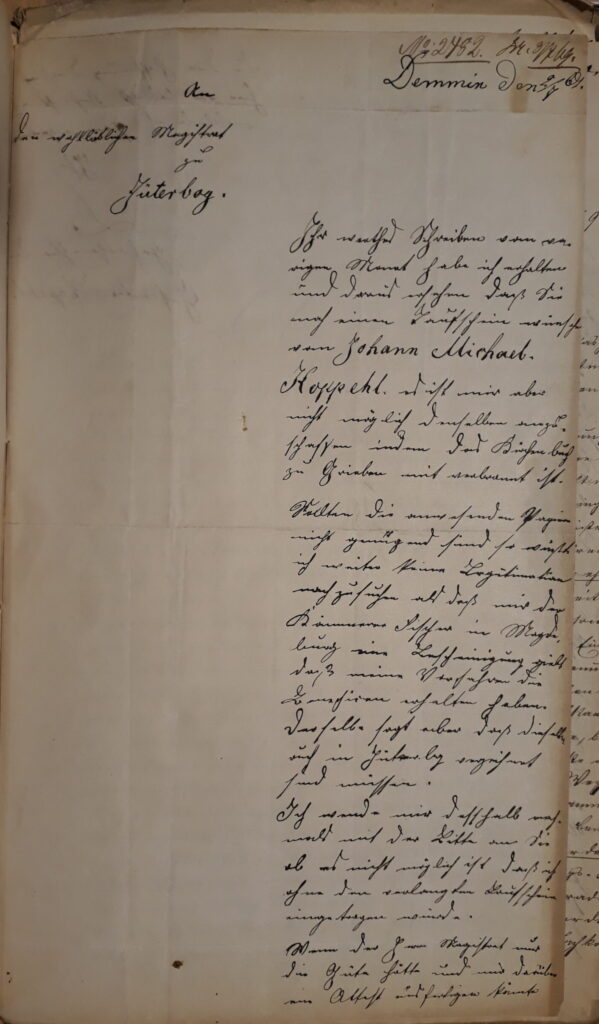 No: 2482.
Demmin den
An
den wohllöblichen Magistrat
zu
Jüterbog.
Ihr werthes Schreiben vom vo-
rigen Monat habe ich erhalten
und daraus ersehen daß Sie
noch einen Taufschein wünschen
von Johann Michael
Koppehl. es ist mir aber
nicht möglich denselben anzu-
schaffen indem das Kirchenbuch
zu Grieben mit verbrannt ist.
Sollten die anwesenden Papiere
nicht genügend sind so wüßte
ich weiter keine Legitimation
nachzusuchen als daß mir der
Kämmerer Fischer in Magde-
burg eine Bescheinigung giebt
daß meine Vorfahren die
Benefizien erhalten haben.
Derselbe sagt aber daß dieselbe
auch in Jüterbog verzeichnet
sind müssen.
Ich wende mir desshalb noch-
mals mit der Bitte an Sie
ob es nicht möglich ist daß ich
ohne den verlangten Taufschein
eingetragen würde.
Wenn der Herr Magistrat nur
die Güte hätte und mir darüber
ein Attest ausfertigen könnte